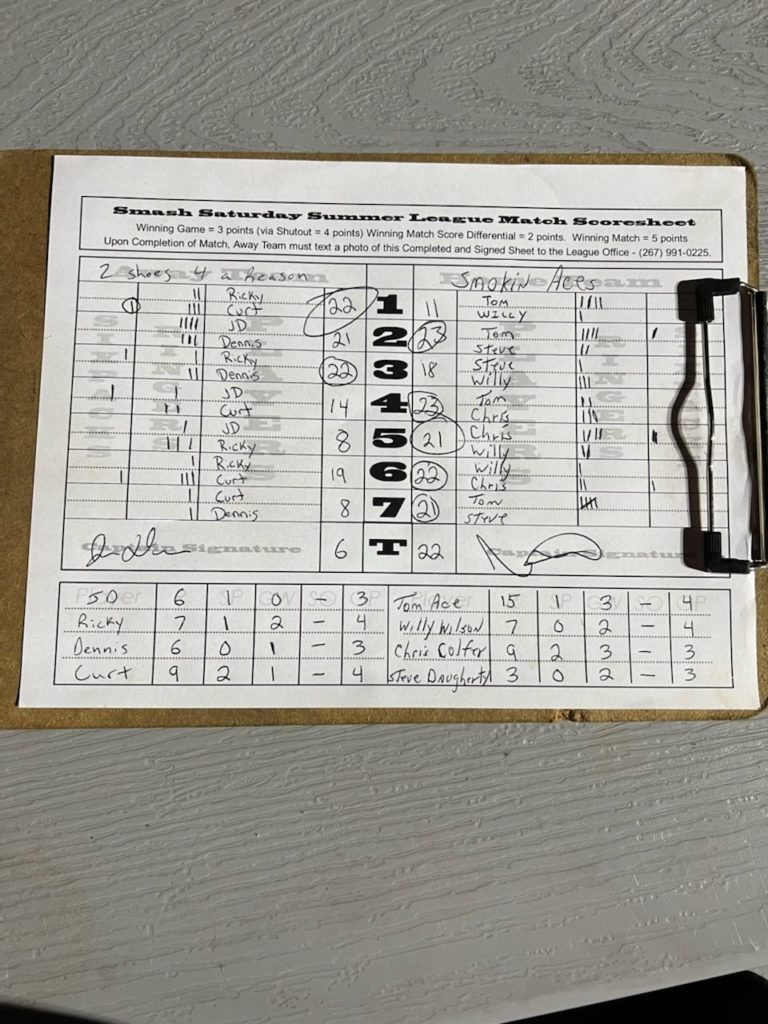 Smash Saturday Summer League Match Scoresheet
Winning Game = 3 points (via Shutout = 4 points) Winning Match Score Differential = 2 points. Winning Match = 5 points
Upon Completion of Match, Away Team must text a photo of this Completed and Signed Sheet to the League Office - (267) 991-0225.
2 shoes 4 a Reason Smokin Aces
Ricky 22 1 11 Tom
Curt Willy
JD 21 2 23 Tom
Dennis Steve
Ricky 22 3 18 Steve
Dennis Willy
JD 14 4 23 Tom
Curt Chris
JD 8 5 21 Chris
Ricky Willy
Ricky 19 6 22 Willy
Curt Chris
Curt 8 7 21 Tom
Dennis Steve
Captain Signature 6 T 22 Captain Signature
JD 6 1 0 - 3 Tom Ace 15 1 3 - 4
Ricky 7 1 2 - 4 Willy Wilson 7 0 2 - 4
Dennis 6 0 1 - 3 Chris Colfer 9 2 3 - 3
Curt 9 2 1 - 4 Steve Daugherty 3 0 2 - 3